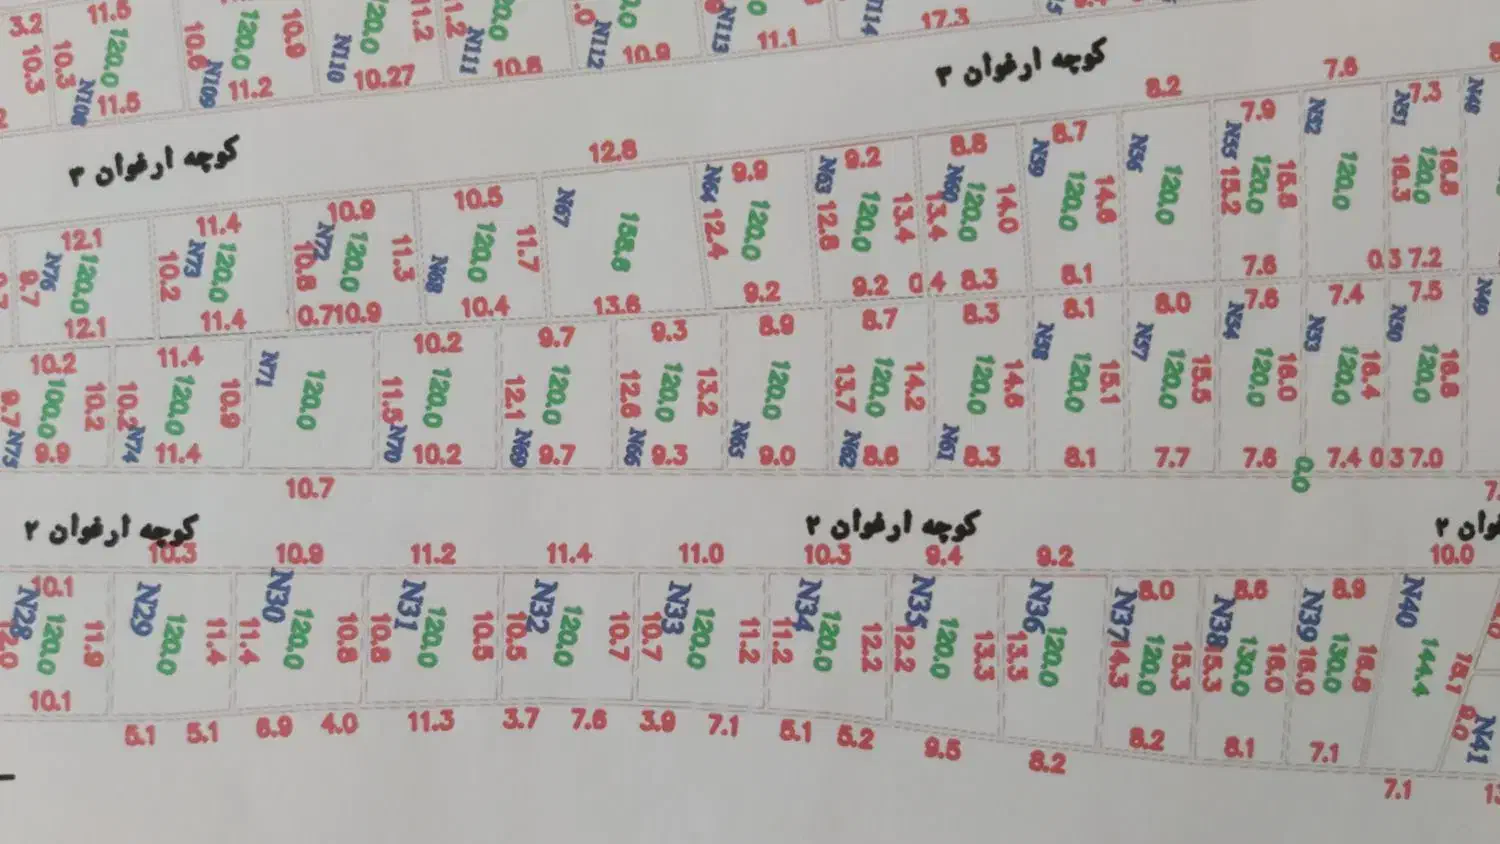 11.5 10.9 120.0 11.2 11.2 120.0 N113 11.1 N114 17.3
3.2 10.3 10.3 120.0 10.6 120.0 120.0 N111 N112
N108 11.5 N109 11.2 N110 10.27 10.8 10.9
کوچه ارغوان ۳
8.2 7.6
کوچه ارغوان ۳
12.8
7.9 N52 N51 7.3 N48
9.9 9.2 8.8 8.7 N56 N55
N64 N63 N60 N59
12.1 11.4 10.9 10.5 N67
N76 120.0 N73 120.0 N72 120.0 N68 120.0 158.8 120.0 120.0 120.0 120.0 120.0 120.0 120.0 120.0
9.7 10.2 10.8 11.3 11.7 12.4 12.8 13.4 13.4 14.0 14.6 15.2 15.8 16.3 16.8
12.1 11.4 0.7 10.9 10.4 13.6 9.2 9.2 0.4 8.3 8.1 7.6 0.3 7.2
10.2 11.4 N71 10.2 9.7 9.3 8.9 8.7 8.3 8.1 8.0 7.6 7.4 7.5 N49
N58 N57 N54 N53 N50
9.7 100.0 10.2 10.2 120.0 10.9 120.0 11.5 120.0 12.1 120.0 12.6 120.0 13.2 120.0 13.7 120.0 14.2 120.0 14.6 120.0 15.1 120.0 15.5 120.0 16.0 120.0 16.4 120.0 16.8
N75 9.9 N74 11.4 N70 10.2 N69 9.7 N66 9.3 N65 9.0 N62 8.6 N61 8.3 8.1 7.7 7.6 7.4 0.3 7.0
0.0
10.7
کوچه ارغوان ۲ کوچه ارغوان ۲
10.3 10.9 11.2 11.4 11.0 10.3 9.4 9.2 10.0
10.1 8.0 8.6 8.9
N28 N29 N30 N31 N32 N33 N34 N35 N36 N37 N38 N39 N40
120.0 11.9 120.0 11.4 11.4 120.0 10.8 10.8 120.0 10.5 10.5 120.0 10.7 10.7 120.0 11.2 11.2 120.0 12.2 12.2 120.0 13.3 13.3 120.0 14.3 120.0 15.3 15.3 130.0 16.0 16.0 130.0 16.8 144.4
10.1 N41
5.1 5.1 6.9 4.0 11.3 3.7 7.6 3.9 7.1 5.1 5.2 9.5 8.2 8.2 8.1 7.1 7.1